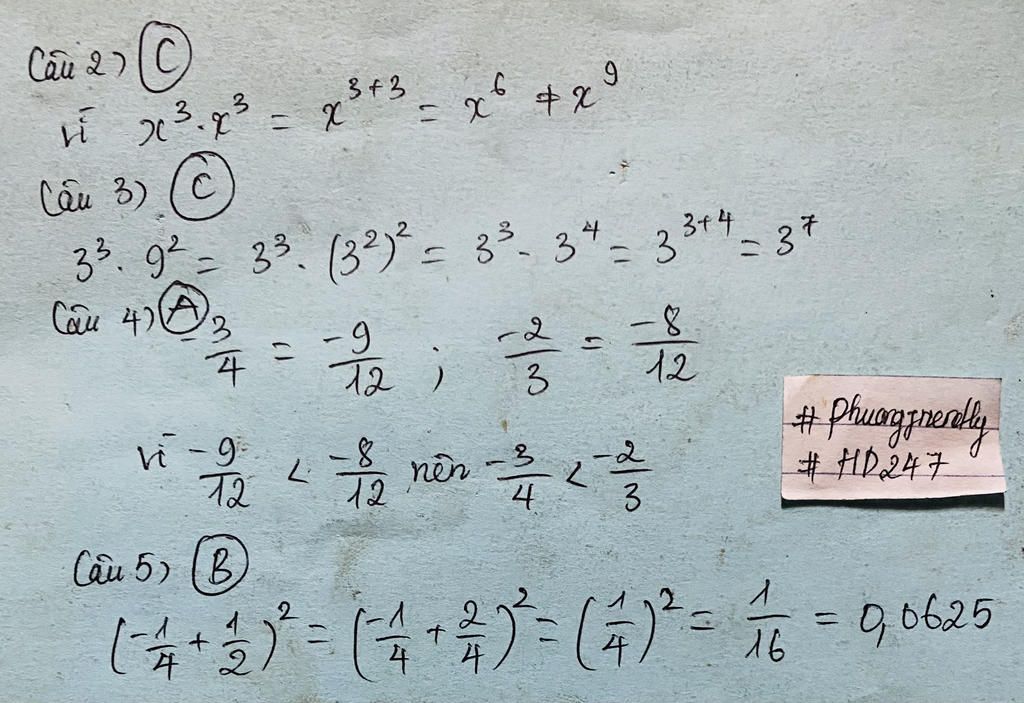 Câu 2) C
vì x³ . x³ = x³⁺³ = x⁶ ≠ x⁹
Câu 3) C
3³ . 9² = 3³ . (3²)² = 3³ . 3⁴ = 3³⁺⁴ = 3⁷
Câu 4) A
-3/4 = -9/12 ; -2/3 = -8/12
vì -9/12 < -8/12 nên -3/4 < -2/3
# HD247
Câu 5) B
(-1/4 + 1/2)² = (-1/4 + 2/4)² = (1/4)² = 1/16 = 0,0625